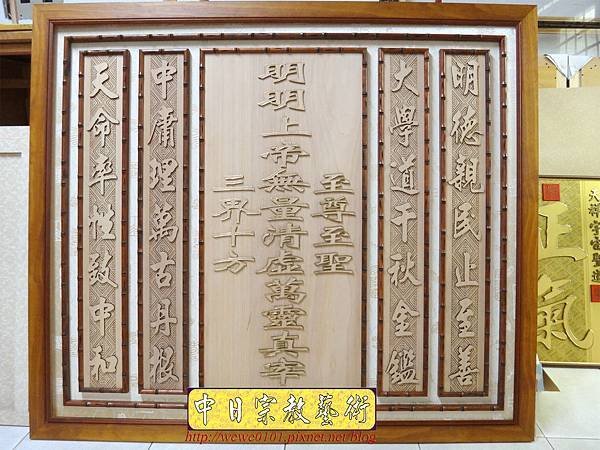 明德親民止至善
大學道千秋金鑑
至尊至聖
明明上帝無量清虛萬靈真宰
三界十方
中庸理萬古丹根
天命率性致中和
正氣
中日宗教藝術
http://wewe0101.pixnet.net/blog